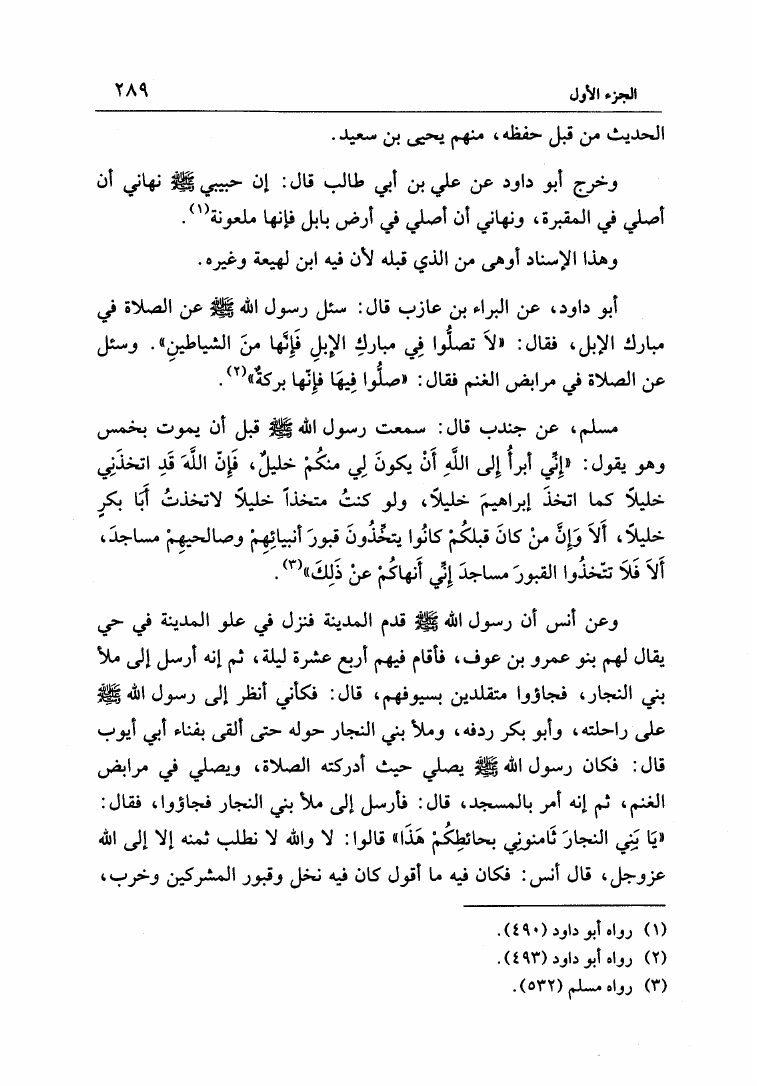 الجزء الأول
٢٨٩
الحديث من قبل حفظه، منهم يحيى بن سعيد.
وخرج أبو داود عن علي بن أبي طالب قال: إن حبيبي ﷺ نهاني أن
أصلي في المقبرة، ونهاني أن أصلي في أرض بابل فإنها ملعونة(١).
وهذا الإسناد أوهى من الذي قبله لأن فيه ابن لهيعة وغيره.
أبو داود، عن البراء بن عازب قال: سئل رسول الله ﷺ عن الصلاة في
مبارك الإبل، فقال: «لاَ تصلُّوا فِي مباركِ الإبلِ فَإِنَّها منَ الشياطينِ». وسئل
عن الصلاة في مرابض الغنم فقال: «صلُّوا فِيهَا فإنّها بركةٌ»(٢).
مسلم، عن جندب قال: سمعت رسول الله ﷺ قبل أن يموت بخمس
وهو يقول: «إِنِّي أبرأُ إلى اللَّهِ أَنْ يكونَ لِي منكُمْ خليلٌ، فَإِنّ اللَّهَ قَدِ اتخذَنِي
خليلاً كما اتخذَ إبراهيمَ خليلاً، ولو كنتُ متخذاً خليلاً لاتخذتُ أَبَا بكرٍ
خليلاً، أَلاَ وَإِنَّ منْ كانَ قبلكُمْ كانُوا يتخِّذُونَ قبورَ أنبيائِهِمْ وصالحيهِمْ مساجدَ،
أَلاَ فَلاَ تتّخذُوا القبورَ مساجدَ إِنِّي أنهاكُمْ عنْ ذَلِكَ»(٣).
وعن أنس أن رسول الله ﷺ قدم المدينة فنزل في علو المدينة في حي
يقال لهم بنو عمرو بن عوف، فأقام فيهم أربع عشرة ليلة، ثم إنه أرسل إلى ملأ
بني النجار، فجاؤوا متقلدين بسيوفهم، قال: فكأني أنظر إلى رسول الله ﷺ
على راحلته، وأبو بكر ردفه، وملأ بني النجار حوله حتى ألقى بفناء أبي أيوب
قال: فكان رسول الله ﷺ يصلي حيث أدركته الصلاة، ويصلي في مرابض
الغنم، ثم إنه أمر بالمسجد، قال: فأرسل إلى ملأ بني النجار فجاؤوا، فقال:
«يَا بَنِي النجارَ ثَامنونِي بحائطِكُمْ هَذَا» قالوا: لا والله لا نطلب ثمنه إلا إلى الله
عزوجل، قال أنس: فكان فيه ما أقول كان فيه نخل وقبور المشركين وخرب،
(١) رواه أبو داود (٤٩٠).
(٢) رواه أبو داود (٤٩٣).
(٣) رواه مسلم (٥٣٢).